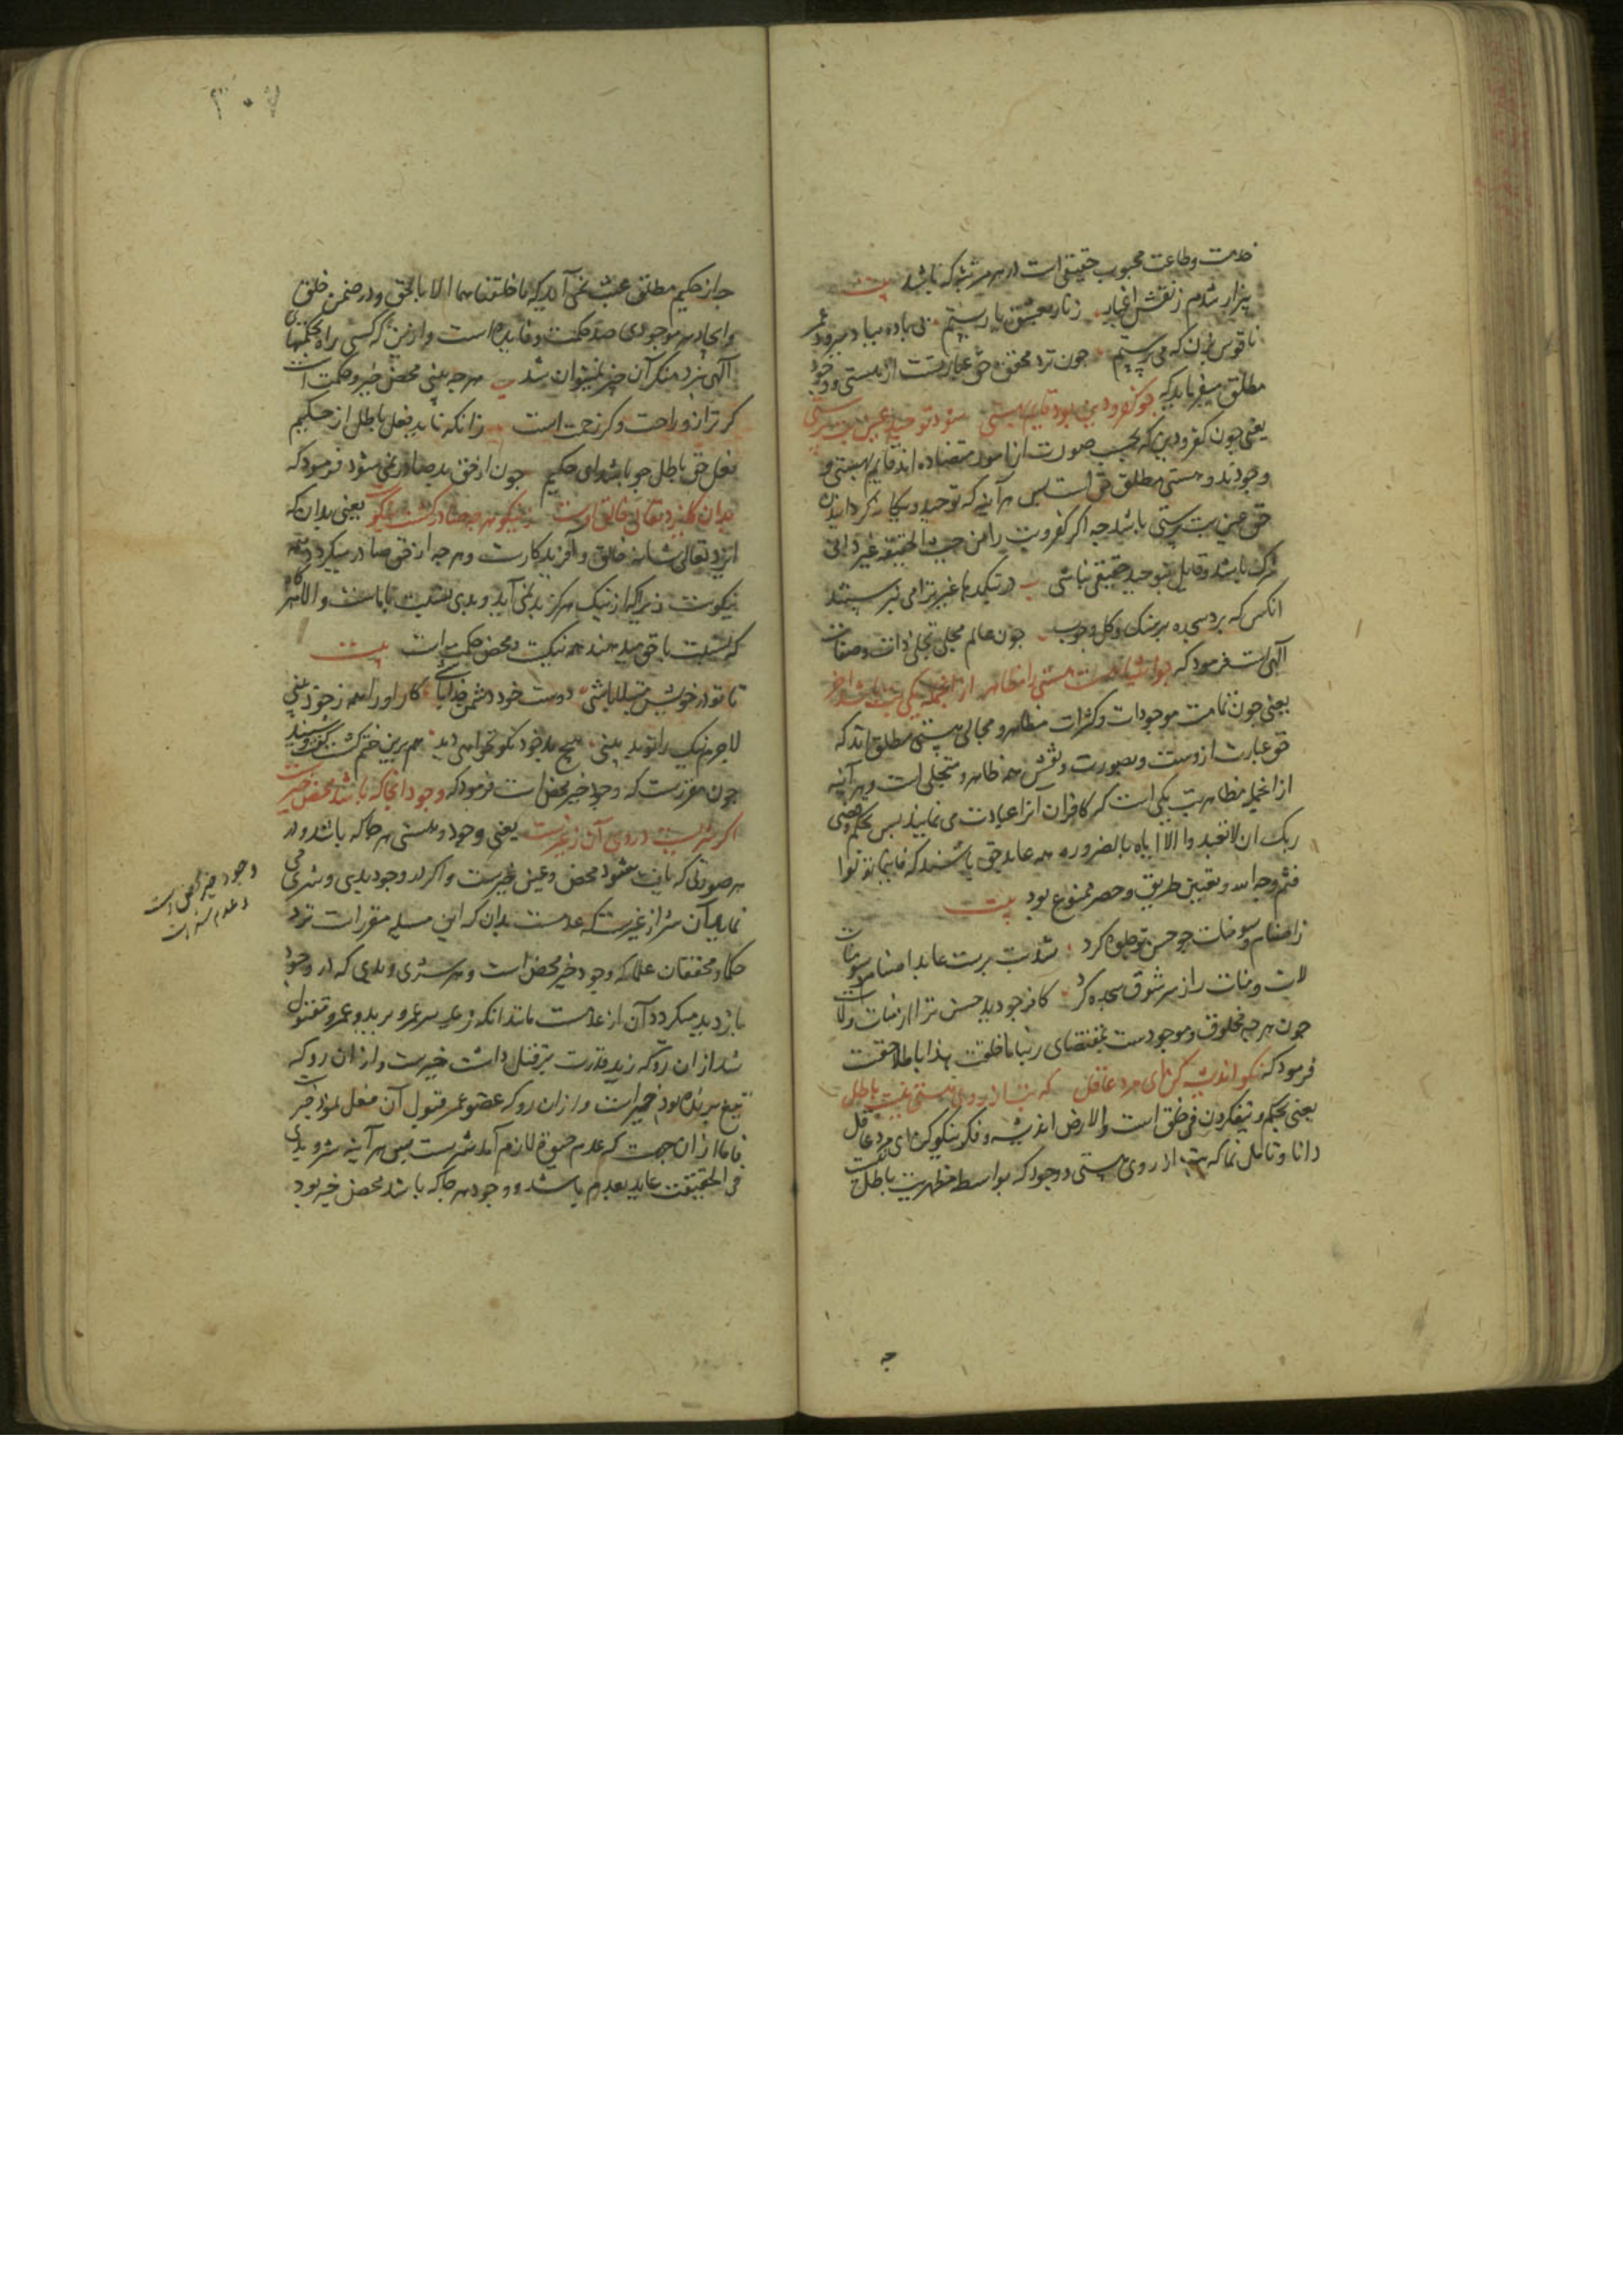 خدمت وطاعت محبوب حقیقی است در هر مرتبه که باشد بیت
بیزار شدم ز نقش اغیار زنار بعشق یار بستیم بی باده میباد میرود عمر
ناقوس بزن که می پرستیم چون نزد محقق حق عبارتست از هستی و وجود
مطلق میفرماید که چو کفر و دین بود قایم بهستی شود توحید عین بت پرستی
یعنی چون کفر و دین که بحسب صورت از امور متضاده اند قایم بهستی و
وجودند و هستی مطلق حق است پس هر آینه که توحید و یکانه کردانیدن
حق عین بت پرستی باشد چه اکر کفر و بت را من حیث الحقیقه غیر دانی
شرک باشد و قایل بتوحید حقیقی نباشی در بتکدها غیر ترا می نپرستند
آنکس که برد سجده بر سنک و کل و چوب چون عالم مجلی تجلی ذات و صفات
آلهی است فرمود که چو اشیا هست هستی را مظاهر از آنجمله یکی بت باشد آخر
یعنی چون تمامت موجودات و کثرات مظاهر و مجالی هستی مطلق اند که
حق عبارت ازوست و بصورت و نقش همه ظاهر و متجلی است و هر آینه
از انجمله مظاهر بت یکی است که کافران آنرا عبادت می نمایند پس بحکم وقضی
ربک ان لا تعبدوا الا ایاه بالضروره همه عابد حق باشند که فاینما تولوا
فثم وجه الله و تعیین طریق و حصر ممنوع بود بیت
ز اصنام و سومنات چو حسن تو جلوه کرد شد بت پرست عابد اصنام سومنات
لات و منات را ز سر شوق سجده کرد کافر چو دید حسن ترا از منات و لات
چون هر چه مخلوق و موجودست بمقتضای ربنا ما خلقت هذا باطلا حقست
فرمود که نکو اندیشه کن ای مرد عاقل که بت از روی هستی نیست باطل
یعنی بحکم و یتفکرون فی خلق السموات والارض اندیشه و فکر نیکو کن ای مرد عاقل
دانا و تامل نما که بت از روی هستی و وجود که بواسطه مظهریت باطل نیست
چه
۲۰۷
چه از حکیم مطلق عبث نمی آید که ما خلقناهما الا بالحق و در ضمن خلق
و ایجاد هر موجودی صد حکمت و فایده است و ازین که کسی راه بحکمتهای
آلهی نبرد منکر آن چیز نمیتوان شد هر چه بینی محض خیر و حکمت است
کر ترا زو راحت و کر زحمت است زانکه ناید فعل باطل از حکیم
فعل حق باطل چو باشد ای حکیم چون از حق بد صادر نمی شود فرمود که
بدان کایزد تعالی خالق اوست ز نیکو هر چه صادر کشت نیکوست یعنی بدان که
ایزد تعالی شانه خالق و آفریدکارست و هر چه از حق صادر میکردد همه
نیکوست زیرا که از نیک هرکز بد نمی آید و بدی نسبت با ماست و الا هر کاه
که نسبت با حق میدهند همه نیکست و محض حکمت است بیت
تا تو در خویش مبتلا باشی دوست خود دشمن خدا باشی کار او را همه ز خود بینی
لاجرم نیک را تو بد بینی هیچ بد خود نکو نخواهی دید هم برین ختم کشت کفت و شنید
چون مقررست که وجود خیر محض است فرمود که وجود آنجا که باشد محض خیرست
اکر شریست در وی آن ز غیرست یعنی وجود و هستی هر جا که باشد و در
هر صورتی که یافت شود محض و عین خیرست و اکر در وجود بدی و شری می
نماید آن شر از غیرست که عدمست بدان که این مسله مقررات نزد
حکما و محققان علما که وجود خیر محض است و هر شری و بدی که در وجود
باز دید میکردد آن از عدمست مانند آنکه زید سر عمرو ببرید و عمرو مقتول
شد از آن رو که زید قدرت بر قتل داشت خیرست و از آن رو که
تیغ برنده بود خیر است و از آن رو که عضو عمر قبول آن فعل نمود خیرست
فاما از آن جهت که عدم حیوة لازم آمد شرست پس هر آینه شر و بدی
فی الحقیقت عاید بعدم باشد و وجود هر جا که باشد محض خیر بود
وجود خیر محض است
و عدم شر است